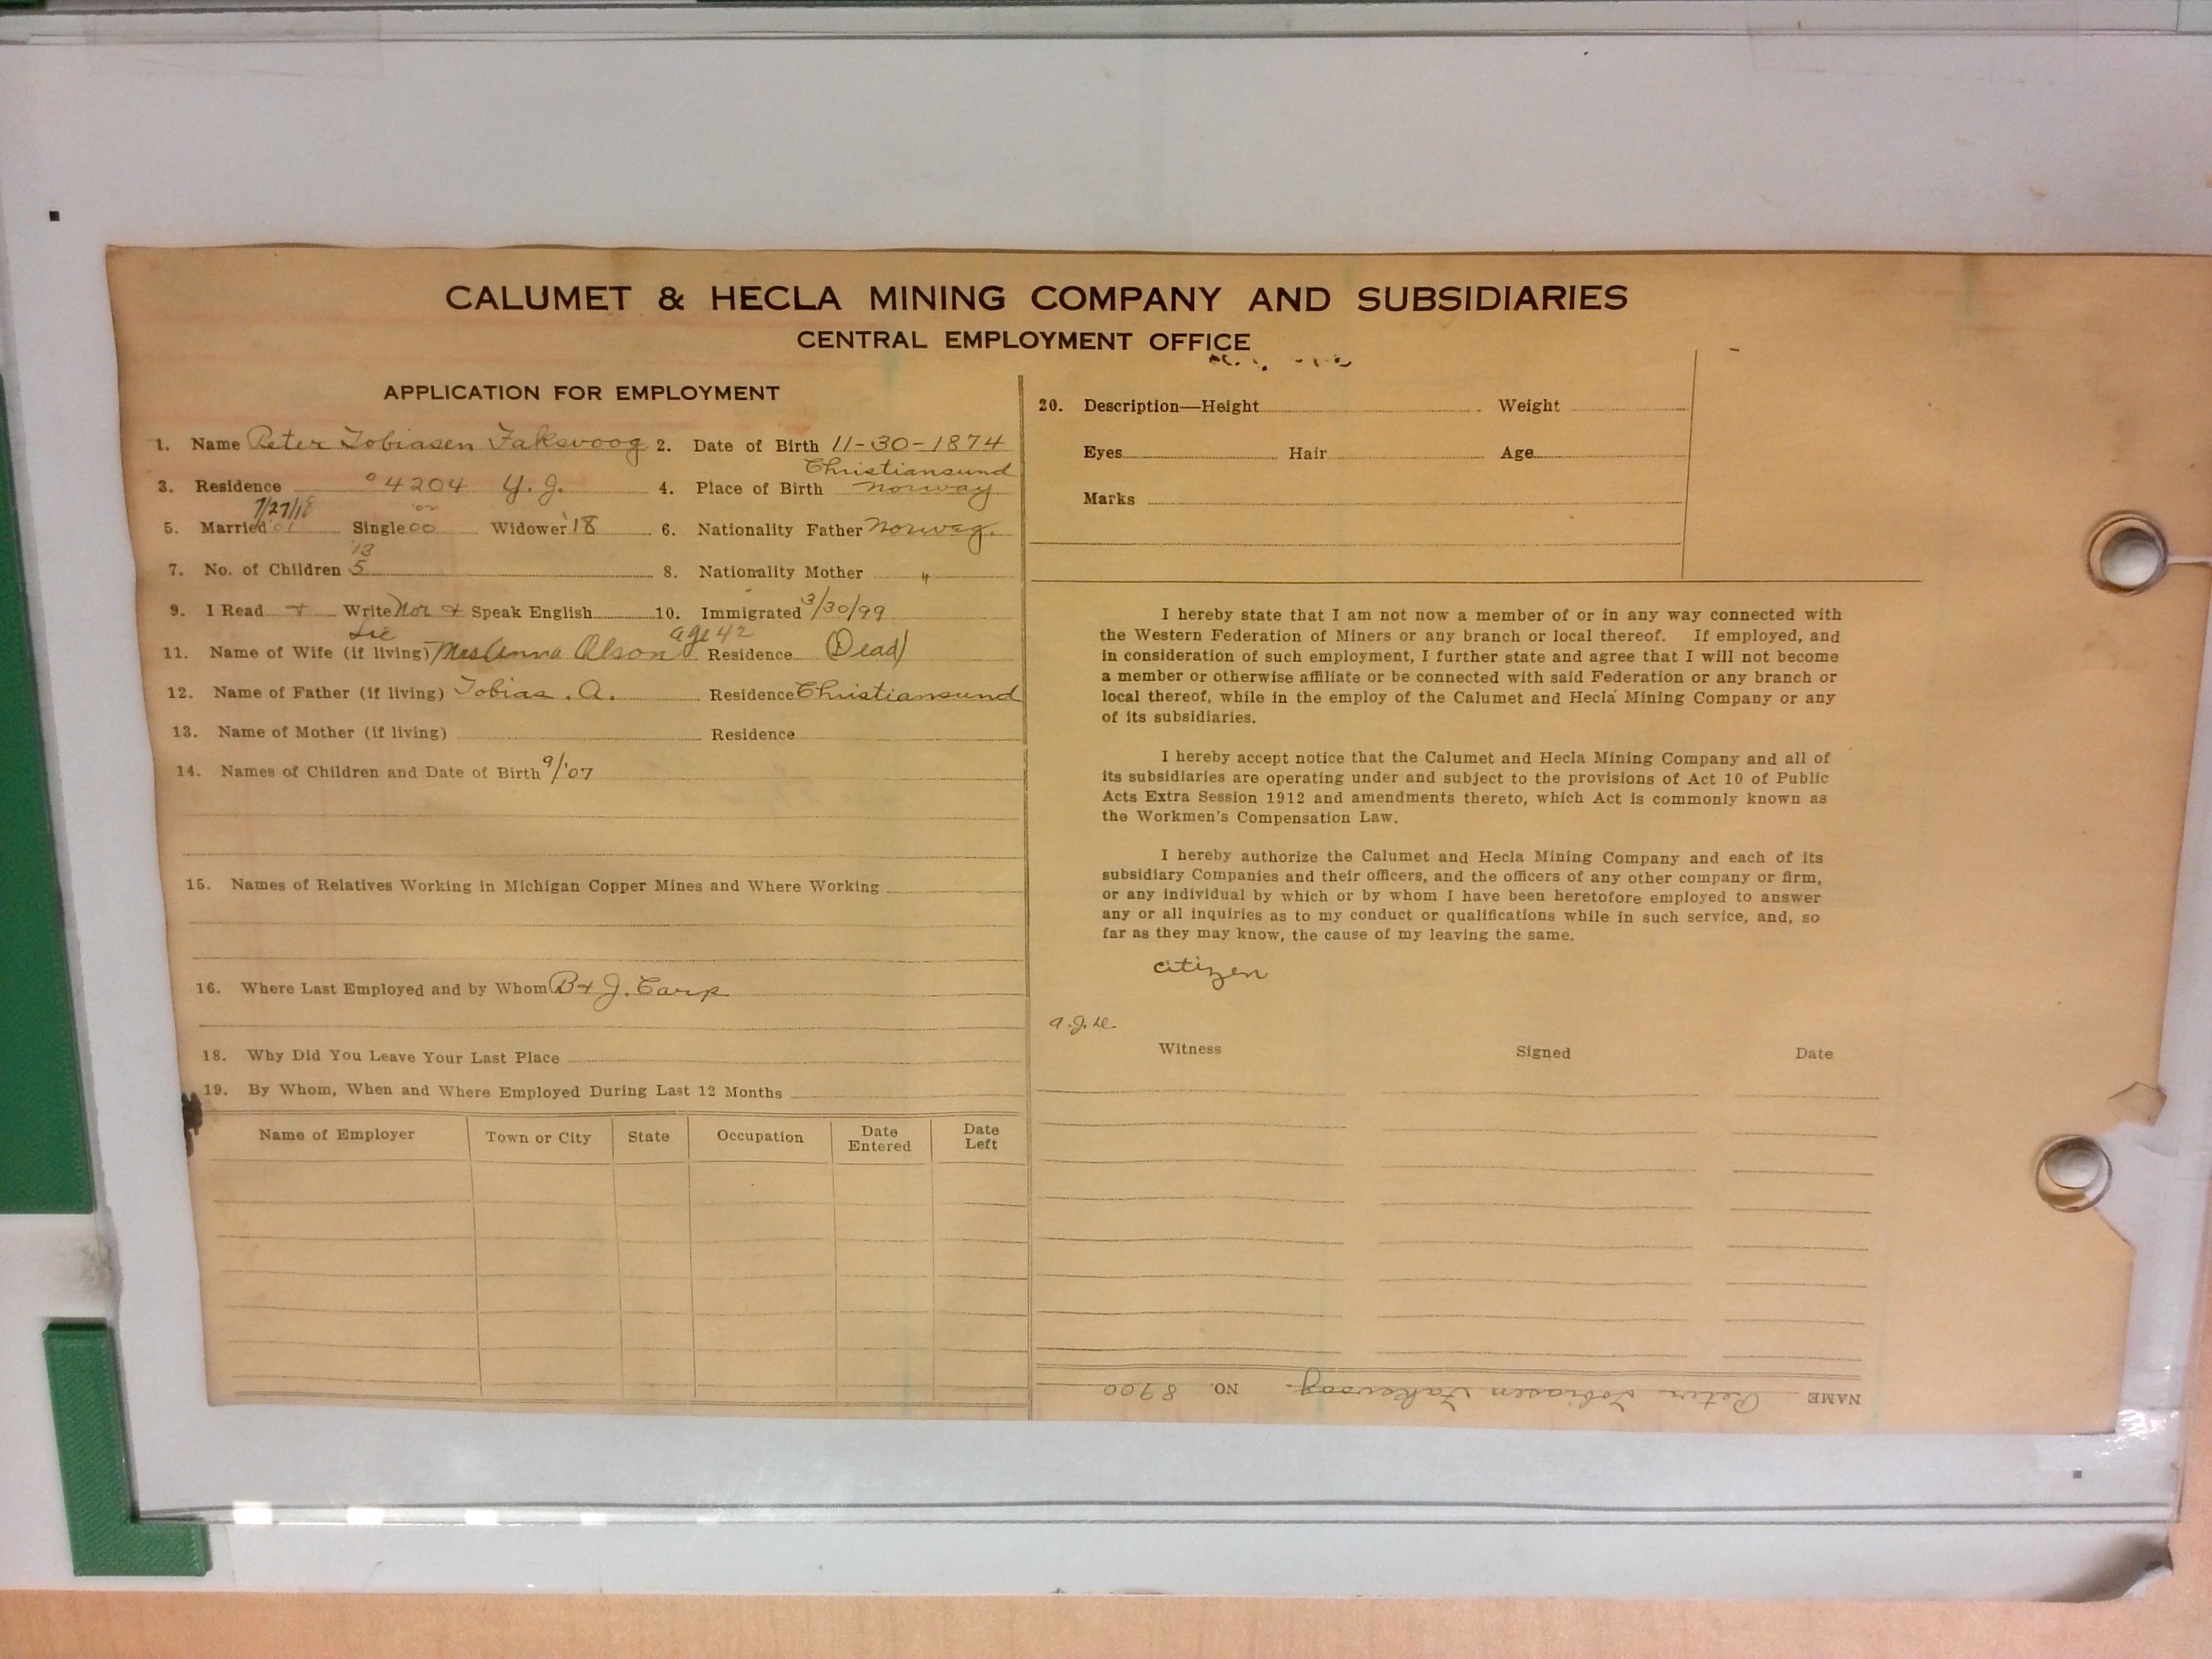 CALUMET & HECLA MINING COMPANY AND SUBSIDIARIES
CENTRAL EMPLOYMENT OFFICE
APPLICATION FOR EMPLOYMENT
1. Name Peter Tobiasen Fakevoog 2. Date of Birth 11-30-1874
Christiansund
3. Residence 4204 Y. J. 4. Place of Birth Norway
7/27/18
5. Married 01 Single 00 Widower '18 6. Nationality Father Norway.
'13
7. No. of Children 5 8. Nationality Mother "
9. I Read + Write Nor + Speak English 10. Immigrated 3/30/99
age 42
11. Name of Wife (if living) Mrs Anna Olson Residence (Dead)
12. Name of Father (if living) Tobias. A. Residence Christiansund
13. Name of Mother (if living) Residence
14. Names of Children and Date of Birth 9/'07
15. Names of Relatives Working in Michigan Copper Mines and Where Working
16. Where Last Employed and by Whom B+ J. Carp
18. Why Did You Leave Your Last Place
19. By Whom, When and Where Employed During Last 12 Months
Name of Employer Town or City State Occupation Date Entered Date Left
20. Description—Height Weight
Eyes Hair Age
Marks
I hereby state that I am not now a member of or in any way connected with
the Western Federation of Miners or any branch or local thereof. If employed, and
in consideration of such employment, I further state and agree that I will not become
a member or otherwise affiliate or be connected with said Federation or any branch or
local thereof, while in the employ of the Calumet and Hecla Mining Company or any
of its subsidiaries.
I hereby accept notice that the Calumet and Hecla Mining Company and all of
its subsidiaries are operating under and subject to the provisions of Act 10 of Public
Acts Extra Session 1912 and amendments thereto, which Act is commonly known as
the Workmen's Compensation Law.
I hereby authorize the Calumet and Hecla Mining Company and each of its
subsidiary Companies and their officers, and the officers of any other company or firm,
or any individual by which or by whom I have been heretofore employed to answer
any or all inquiries as to my conduct or qualifications while in such service, and, so
far as they may know, the cause of my leaving the same.
citizen
Witness Signed Date
NAME Peter Tobiasen Fakevoog. NO. 8900